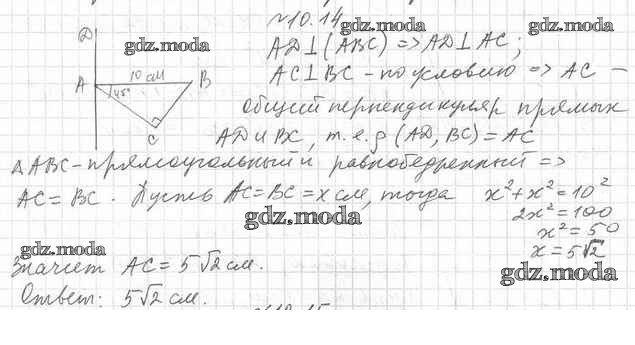 №10.14
gdz.moda
gdz.moda
gdz.moda
D
A
10 см
B
45°
C
AD⊥(ABC) => AD⊥AC,
AC⊥BC - по условию => AC -
общий перпендикуляр прямых
AD и BC, т.е. ρ(AD, BC) = AC
△ABC - прямоугольный и равнобедренный =>
AC = BC. Пусть AC=BC=x см, тогда x²+x²=10²
2x²=100
x²=50
x=5√2
gdz.moda
gdz.moda
gdz.moda
Значит AC = 5√2 см.
Ответ: 5√2 см.